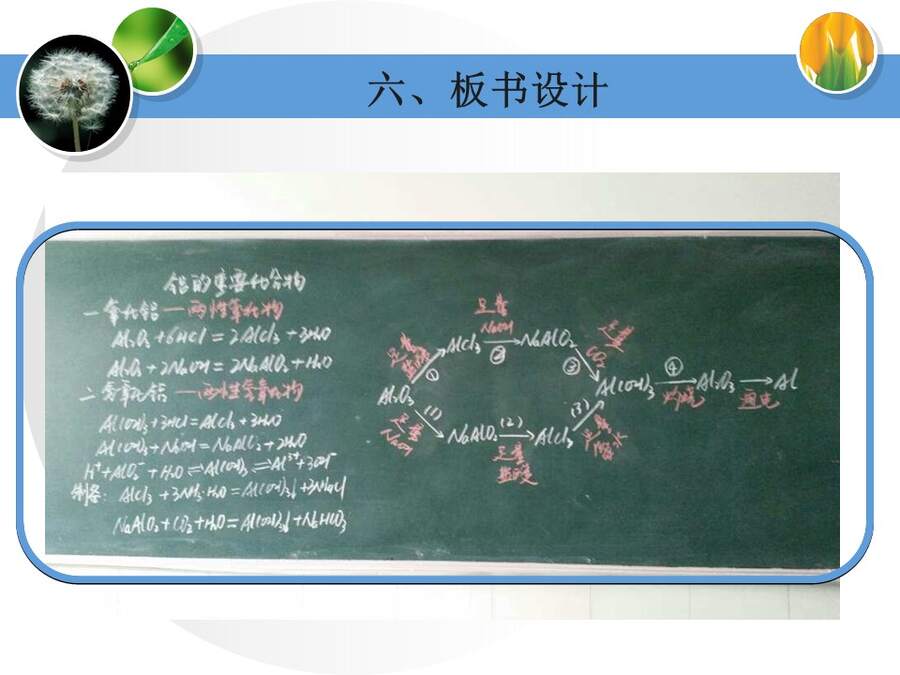 六、板书设计
铝的重要化合物
一 氧化铝—两性氧化物
Al₂O₃+6HCl=2AlCl₃+3H₂O
Al₂O₃+2NaOH=2NaAlO₂+H₂O
二 氢氧化铝—两性氢氧化物
Al(OH)₃+3HCl=AlCl₃+3H₂O
Al(OH)₃+NaOH=NaAlO₂+2H₂O
H⁺+AlO₂⁻+H₂O⇌Al(OH)₃⇌Al³⁺+3OH⁻
制备: AlCl₃+3NH₃·H₂O=Al(OH)₃↓+3NH₄Cl
NaAlO₂+CO₂+H₂O=Al(OH)₃↓+NaHCO₃
Al₂O₃
足量 盐酸
①
AlCl₃
足量 NaOH
②
NaAlO₂
足量 CO₂
③
(1)
足量 NaOH
NaAlO₂
(2)
足量 盐酸
AlCl₃
(3)
足量 氨水
Al(OH)₃
④
灼烧
Al₂O₃
通电
Al